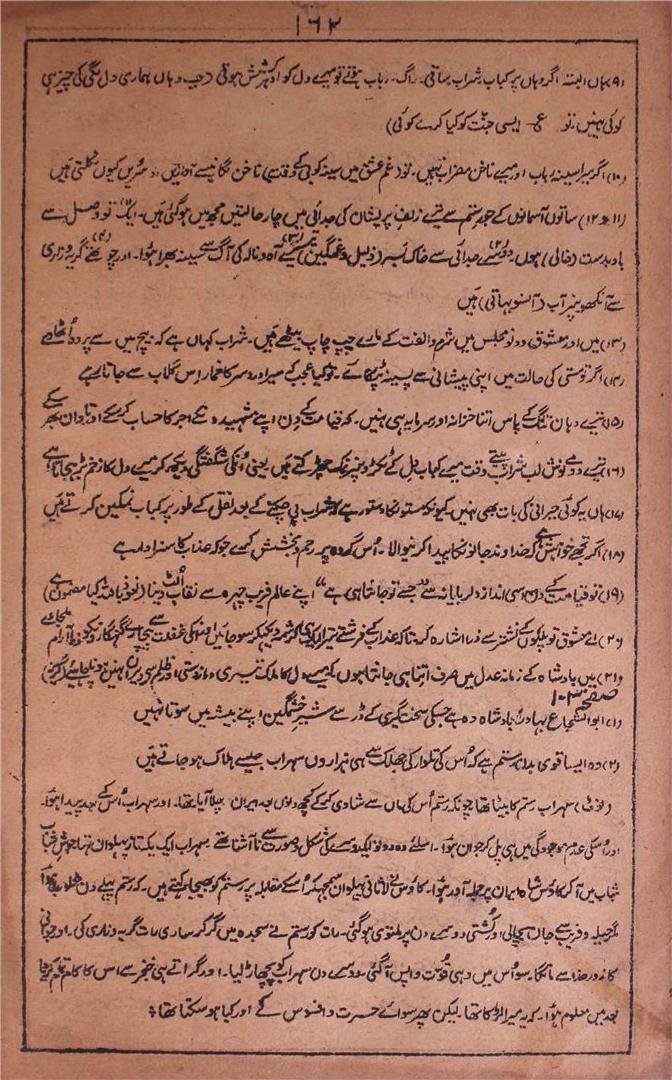 ۱۶۲
(۹) ہاں البتہ اگر وہاں پر کباب شراب ساقی۔ راگ۔ رباب ہوتے تو میرے دل کو اُدھر کشش ہوتی (جب وہاں ہماری دل لگی کی چیز ہی
کوئی نہیں۔ تو ع ایسی جنت کو کیا کرے کوئی)
(۱۰) اگر میرا سینہ رباب اور میرے ناخن مضراب نہیں۔ تو دردِ غم عشق میں سینہ کوبی کے وقت ناخن لگانے سے آوازیں اور سُریں کیوں نکلتی ہیں
(۱۱ و ۱۲) ساتوں آسمانوں کے جور و ستم سے تیرے زلفِ پریشان کی جدائی میں چار حالتیں مجھ میں ہوگئی ہیں۔ ایک تو وصل سے
باد بدست (خالی) ہوں دوسرے جدائی سے خاک بسر (ذلیل و غمگین) تیسرے آہ و نالہ کی آگ سے سینہ بھرا ہوا۔ اور چوتھے گریہ و زاری
سے آنکھیں پُر آب (آنسو بہاتی) ہیں
(۱۳) میں اور معشوق دونو مجلس میں شرم و الفت کے مارے چپ چاپ بیٹھے ہیں۔ شراب کہاں ہے کہ بیچ میں سے پردہ اُٹھا دے
(۱۴) اگر تو مستی کی حالت میں اپنی پیشانی سے پسینہ ٹپکائے۔ تو کیا عجب کہ میرا دردِ سر کا خمار اس گلاب سے جاتا رہے
(۱۵) تیرے دہان تنگ کے پاس اتنا خزانہ اور سرمایہ ہی نہیں۔ کہ قیامت کے دن اپنے شہیدوں کے اجر کا حساب کرسکے اور تاوان بھر سکے
(۱۶) تیرے دو مے نوش لب شراب پیتے وقت میرے کباب دل کے ٹکڑوں پر نمک چھڑکتے ہیں یعنی اُنکی شگفتگی دیکھ کر میرے دل کا زخم ہرا ہوجاتا ہے
(۱۷) ہاں یہ کوئی حیرانی کی بات بھی نہیں کیونکہ مستونکا دستور ہے کہ شراب پی چکنے کے بعد نقل کے طور پر کباب نمکین کرتے ہیں
(۱۸) اگر تجھے خواہش ہے کہ خداوند جانونکا پیدا کرنیوالا۔ اُس گروہ پر رحم و بخشش کرے جو کہ عذاب کا سزاوار ہے
(۱۹) تو قیامت کے دن اسی انداز دلربایانہ سے جسے تو جانتا ہی ہے "اپنے عالم فریب چہرہ سے نقاب اُلٹ دینا (نعوذ باللہ کیا مضمون ہے)
(۲۰) اے معشوق تو پلکوں کے نشتر سے ذرا اشارہ کر تاکہ عذاب کے فرشتے تیرا ایک ہی کرشمہ دیکھکر سو جائیں اور انکی غفلت سے بیچارے گنہگارونکو ذرا آرام ملجائے
(۲۱) میں بادشاہ کے زمانہ عدل میں صرف اتنا ہی جانتا ہوں کہ میرے دل کا ملک تیسری دراز دستی اور ظلم سے ویران نہیں ہونا چاہئے (گریز)
صفحہ ۱۰۳
(۱) ابوالشجاع بہادر بادشاہ وہ ہے جسکی سخت گیری کے ڈر سے شیر خشمگین اپنے بیشہ میں سوتا نہیں
(۲) وہ ایسا قوی بدا رستم ہے کہ اُس کی تلوار کی جھلک سے ہی ہزاروں سہراب جیسے ہلاک ہو جاتے ہیں
(نوٹ) سہراب رستم کا بیٹا تھا چونکہ رستم اُس کی ماں سے شادی کر کے کچھ دنوں بعد ایران چلا آیا تھا۔ اور سہراب اُس کے بعد پیدا ہوا۔
اور اُسکی عدم موجودگی میں ہی پل کر جوان ہوا۔ اسلئے وہ دونو ایکدوسرے کی شکل و صورت سے ناآشنا تھے۔ سہراب ایک یکتا زمانہ پہلوان تھا جوشِ
شباب میں آکر کاؤس شاہ ایران پر حملہ آور ہوا۔ کاؤس نے لاثانی پہلوان سمجھکر اُسکے مقابلہ پر رستم کو بھیجا۔ کہتے ہیں۔ کہ رستم پہلے دن مغلوب ہوا
مگر حیلہ و فریب سے جاں بچالی اور کشتی دوسرے دن پر ملتوی ہوگئی۔ رات کو رستم نے سجدہ میں گر کر ساری رات گریہ و زاری کی۔ اور جوانی
کا زور خدا سے مانگا۔ سو اُس میں وہی قوت واپس آگئی۔ دوسرے دن سہراب کو پچھاڑ لیا۔ اور گراتے ہی خنجر سے اس کا کام تمام کردیا
بعد میں معلوم ہوا۔ کہ یہ میرا لڑکا تھا۔ لیکن پھر سوائے حسرت و افسوس کے اور کیا ہو سکتا تھا *